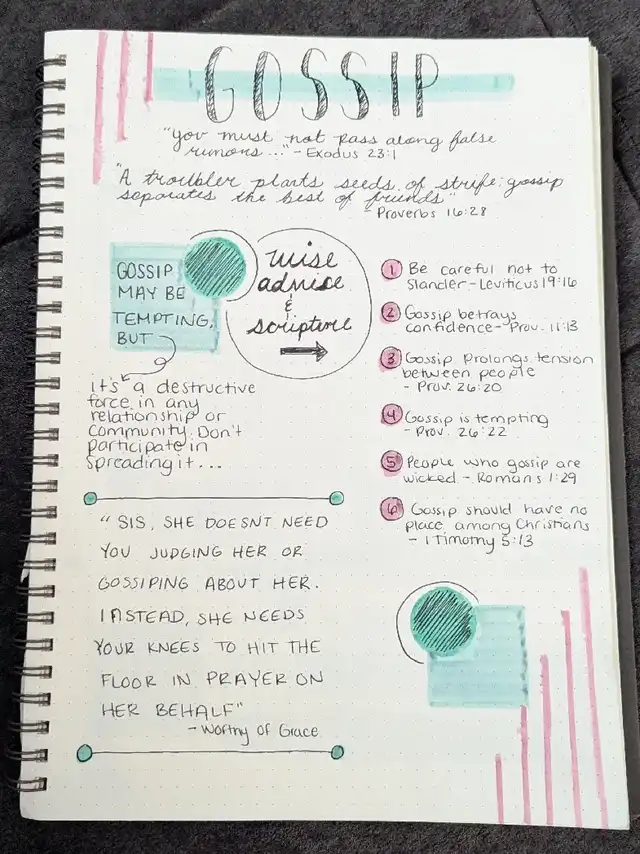 GOSSIP
"you must not pass along false
rumors..." - Exodus 23:1
"A troubler plants seeds of strife; gossip
separates the best of friends"
- Proverbs 16:28
GOSSIP
MAY BE
TEMPTING,
BUT
it's a destructive
force in any
relationship or
community. Don't
participate in
spreading it...
wise
advice
&
scripture
1 Be careful not to
Slander - Leviticus 19:16
2 Gossip betrays
confidence - Prov. 11:13
3 Gossip prolongs tension
between people
- Prov. 26:20
4 Gossip is tempting
- Prov. 26:22
5 People who gossip are
wicked - Romans 1:29
6 Gossip should have no
place among Christians
- 1 Timothy 5:13
"SIS, SHE DOESNT NEED
YOU JUDGING HER OR
GOSSIPING ABOUT HER.
INSTEAD, SHE NEEDS
YOUR KNEES TO HIT THE
FLOOR IN PRAYER ON
HER BEHALF"
- Worthy of Grace